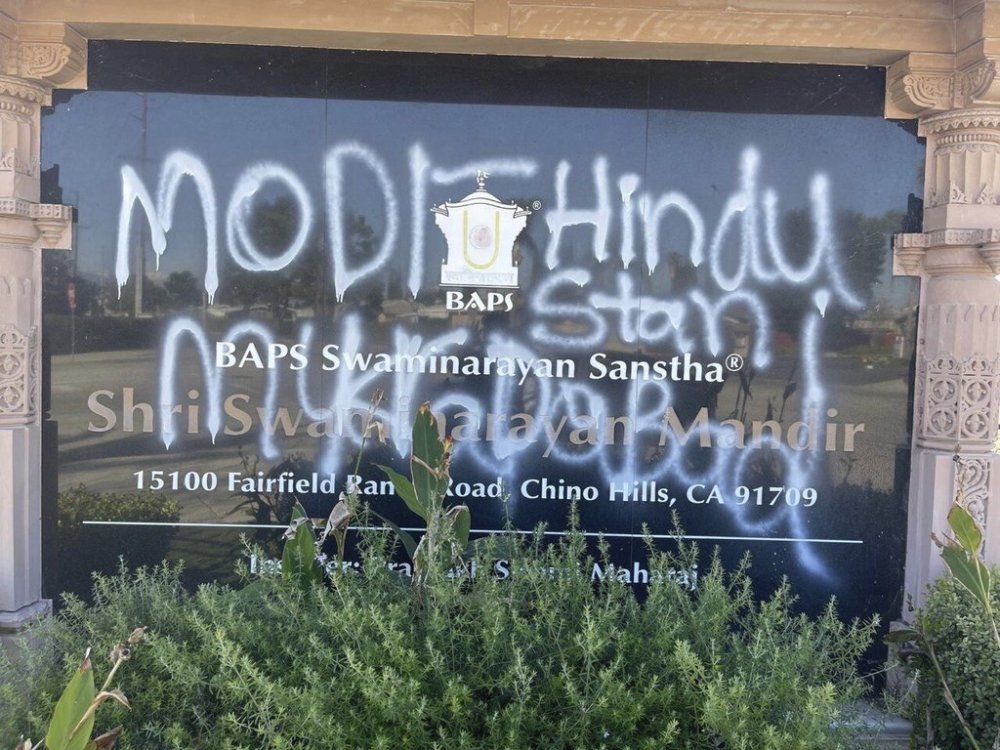 MODI Hindu
Stan
®
BAPS
BAPS Swaminarayan Sanstha®
Shri Swaminarayan Mandir
15100 Fairfield Road, Chino Hills, CA 91709
Swami Maharaj